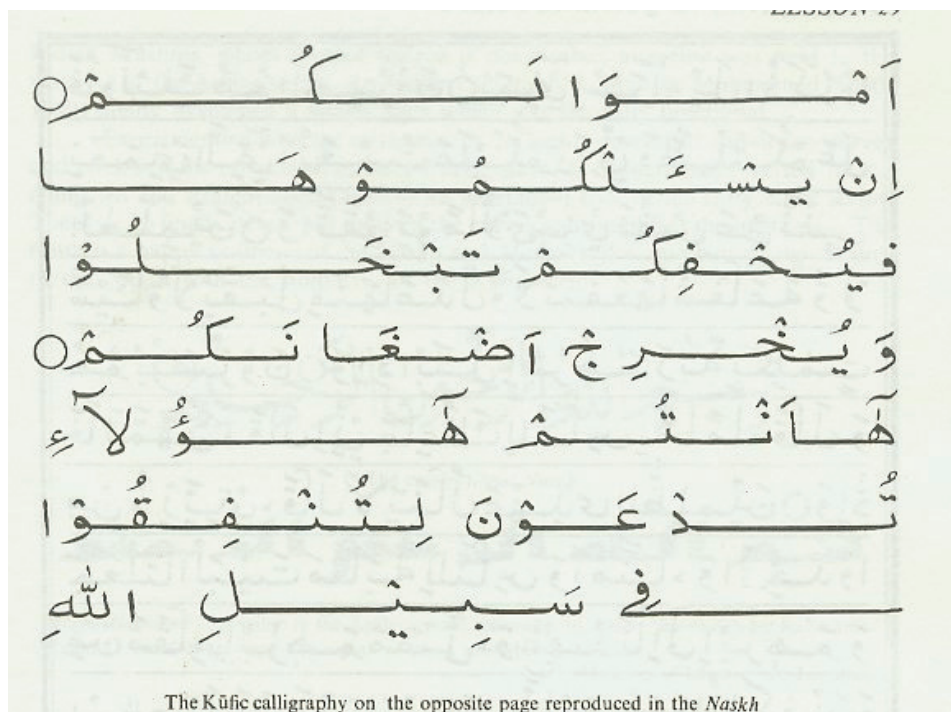 LESSON 29
اَمْوَا لَكُمْ ○
اِنْ يَسْـَٔلْكُمُوْهَا
فَيُحْفِكُمْ تَبْخَلُوْا
وَ يُخْرِجْ اَضْغَانَكُمْ ○
هٰۤاَنْتُمْ هٰۤؤُلَآءِ
تُدْعَوْنَ لِتُنْفِقُوْا
فِيْ سَبِيْلِ اللّٰهِ
The Kūfic calligraphy on the opposite page reproduced in the Naskh